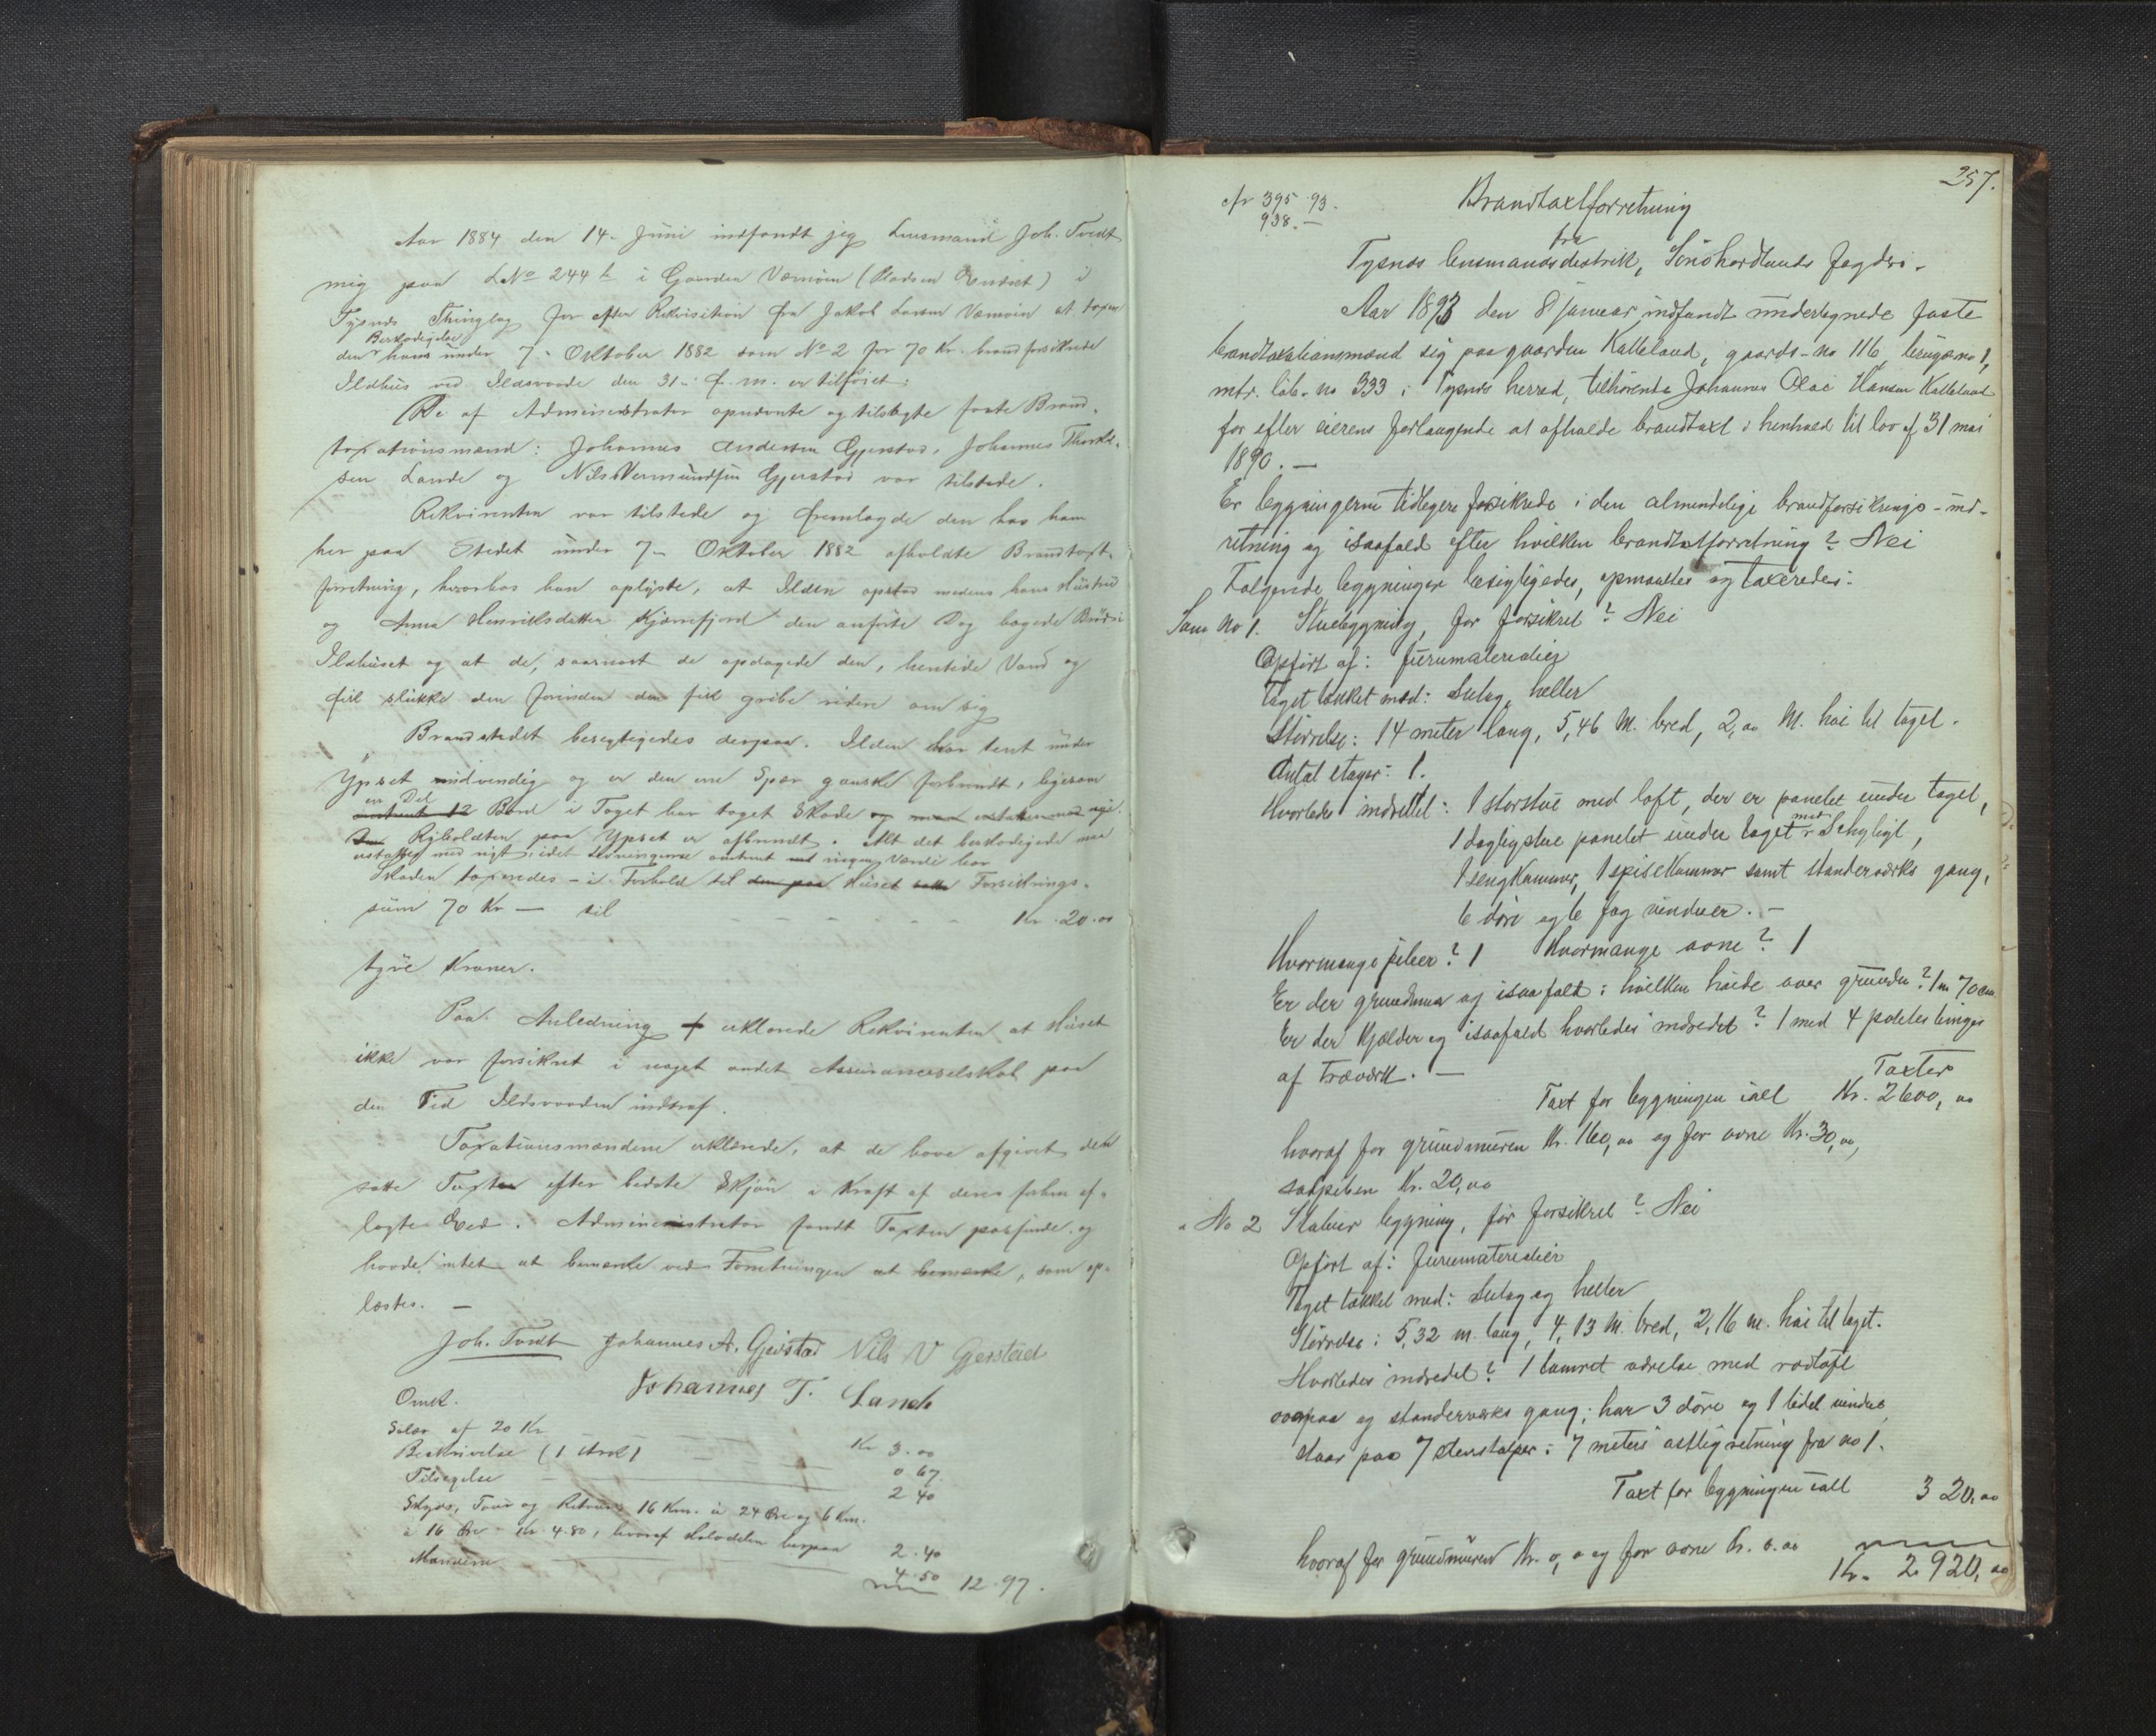 Aar 1884 den 14. Juni indfandt jeg Lensmand Joh. Tvedt
mig paa LNo 244 b i Gaarden Vernøen (Pladsen Endset) i
Tysnæs Thinglag for efter Rekvisition fra Jakob Larsen Vernøen at taxere
den Beskadigelse hans under 7. Oktober 1882 som No 2 for 70 Kr. brandforsikrede
Ildhus ved Ildsvaade den 31. f. m. er tilføiet:
De af Administrator opnævnte og tilsagte faste Brand-
taxationsmænd: Johannes Andersen Gjerstad, Johannes Thorkel-
sen Lande og Nils Vermundsen Gjerstad var tilstede.
Rekvirenten var tilstede og fremlagde den hos ham
her paa Stedet under 7. Oktober 1882 afholdte Brandtaxt-
forretning, hvorhos han oplyste, at Ilden opstod medens hans Hustru
og Anna Henriksdatter Kjærrefjord den anførte Dag bagede Brød i
Ildhuset og at de, saasnart de opdagede den, hentede Vand og
fik slukke den forinden den fik gribe videre om sig
Brandstedet besigtigedes derpaa. Ilden har tent under
Ypset indvendig og er den ene Spær ganske forbrændt, ligesom
en Del Bord i Taget har taget Skade
paa Ypset er afbrændt. Alt det beskadigede maa
erstattes med nyt, idet Levningerne omtrent ingen Værdi har
Skaden taxeredes - i Forhold til Huset Forsikrings-
sum 70 Kr — til Kr. 20.00
tyve Kroner.
Paa Anledning erklærede Rekvirenten at Huset
ikke var forsikret i noget andet Assuranceselskab paa
den Tid Ildsvaaden indtraf.
Taxationsmændene erklærede, at de have afgivet den
satte Taxt efter bedste Skjøn i Kraft af deres forhen af-
lagte Eed. Administrator fandt Taxten passende og
havde intet at bemærke ved Forretningen at bemærke, som op-
læstes. —
Joh. Tvedt Johannes A. Gjerstad Nils V Gjerstad
Johannes T. Lande
Omk.
Salær af 20 Kr Kr 3.00
Beskrivelse (1 Ark) 0 67
Tilsigelse 2 40
Skyds, Tour og Retour 16 Km. à 24 Øre og 6 Km.
à 16 Øre - Kr. 4.80, hvoraf Halvdelen herpaa 2.40
Mændene 4.50
12.97.
257.
cfr 395 93.
938. —
Brandtaxtforretning
fra
Tysnæs lensmandsdistrikt, Søndhordlands fogderi.
Aar 1893 den 8 januar indfandt undertegnede faste
brandtaxtationsmænd sig paa gaarden Kalleland, gaards-no 116, brugsno 1,
mtr. løb-no 333 i Tysnæs herred, tilhørende Johannes Olai Hansen Kalleland
for efter eierens forlangende at afholde brandtaxt i henhold til lov af 31 mai
1890. —
Er bygningerne tidligere forsikrede i den almindelige brandforsikrings-ind-
retning og isaafald efter hvilken brandtaxtforretning? Nei
Følgende bygninger besigtigedes, opmaaltes og taxeredes:
Som No 1. Stuebygning, før forsikret? Nei
Opført af: Furumaterialier
Taget tækket med: Sutag, heller
Størrelse: 14 meter lang, 5,46 M. bred, 2,00 M. høi til taget.
Antal etager: 1.
Hvorledes indrettet: 1 storstue med loft, der er panelet under taget,
1 dagligstue panelet under taget med Schyligt,
1 sengkammer, 1 spisekammer samt standerværks gang,
6 døre og 6 fag vinduer. -
Hvormange piber? 1 Hvormange ovne? 1
Er der grundmur og isaafald i hvilken høide over grunden? 1 m 70 cm.
Er der kjælder og isaafald hvorledes indredet? 1 med 4 poteter binger
af træværk. —
Taxter
Taxt for bygningen ialt Kr. 2600,00
hvoraf for grundmuren Kr. 160,00 og for ovne Kr. 30,00,
Kr. 20,00
" No 2 Stabur bygning, før forsikret? Nei
Opført af: Furumaterialier
Taget tækket med: Sutag og heller
Størrelse: 5,32 m. lang, 4,13 M. bred, 2,16 m. høi til taget.
Hvorledes indredet? 1 tømret værelse med rodloft
ovapaa og standerværks gang; har 3 døre og 1 lidet vindue,
staar paa 7 stenstolper i 7 meters østlig retning fra no 1.
Taxt for bygningen ialt 320,00
hvoraf for grundmuren Kr. 0,0 og for ovne Kr. 0.00
Kr. 2920,00